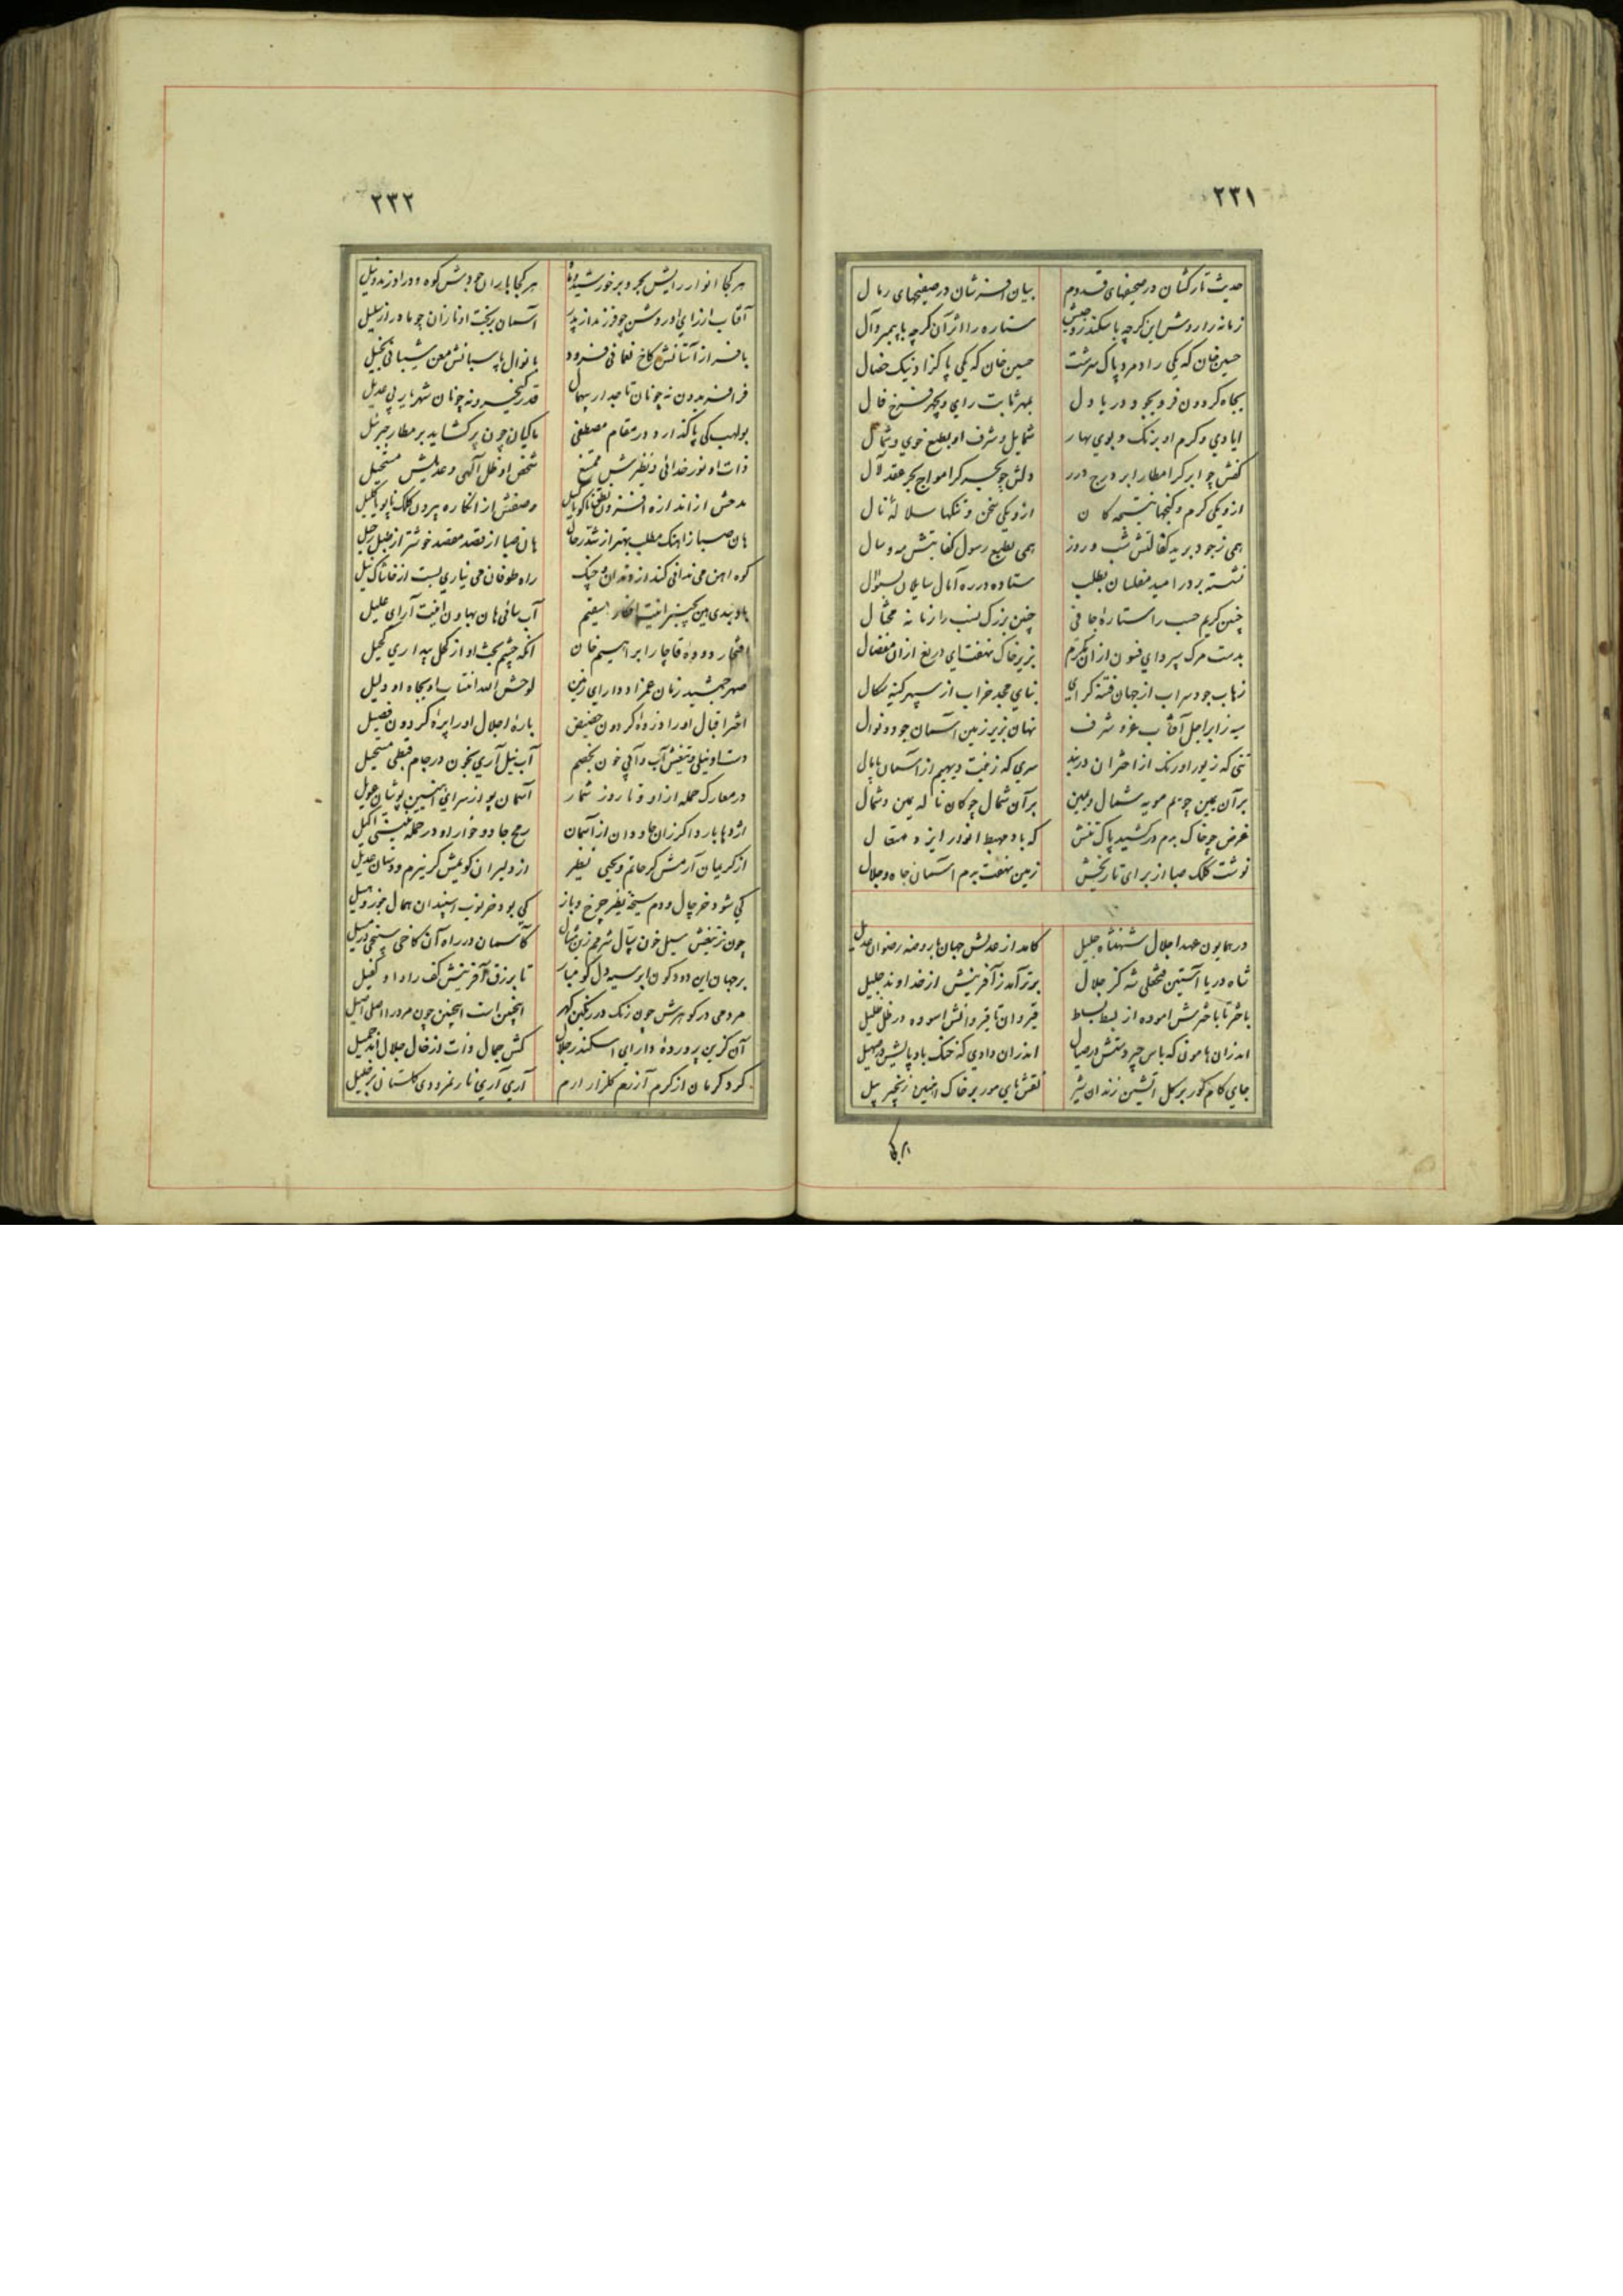 ۲۳۱
حدیث تارکشان در صحیفهای قدوم بیان افسرشان در صفیحهای رمال
زمانه را روش این کرچه با سکندر و جیش ستاره را اثر آن کرچه با پیمبر و آل
حسین خان که یکی راد مرد پاک سرشت حسین خان که یکی پاکزاد نیک خصال
بجاه کردون فر و بجود دریا دل بمهر ثابت رای و بچهر فرخ فال
ایادی و کرم او برنک و بوی بهار شمایل و شرف او بطبع خوی و شمال
کفش چو ابر کرا امطار ابر درج درر دلش چو بحر کرا مواج بحر عقد لآل
ازو یکی کرم و کنجها نتیجه کان ازو یکی سخن و تنکها سلاله نال
همی ز جود برید کفالتش شب و روز همی بطبع رسول کفایتش مه و سال
نشسته بر در امید مفلسان بطلب ستاده در ره آمال سایلان بسؤال
چنین کریم حسب را ستاره جافی چنین بزرک نسب را زمانه محتال
بدست مرک سپرد ای فسون ازان مکرم بزیر خاک نهفت ای دریغ ازان مفضال
زهاب جود سراب از جهان فتنه کرای بنای مجد خراب از سپهر کینه سکال
سیه ز ابر اجل آفتاب عز و شرف نهان بزیر زمین آسمان جود و نوال
تنی که زیور اورنک از اختران در بند سری که زینت دیهیم از آسمان پامال
بر آن یمین چو یم مویه شمال و یمین بر آن شمال چو کان ناله یمین و شمال
غرض چو خاک برم درکشید پاک تنش که باد مهبط انوار ایزد متعال
نوشت کلک صبا از برای تاریخش زمین نهفت برم آسمان جاه و جلال
در همایون عهد اجلال شهنشاه جلیل کامد از عدلش جهان با روضه رضوان عدیل
شاه دریا آستین فتحعلی شه کز جلال برتر آمد ز آفرینش از خداوند جلیل
باختر تا باخترش اموده از بسط بساط قیروان تا قیروانش اسوده در ظل ظلیل
اندران هامونی که باس چیر دستش در صیال اندران وادی که خنک باد پایش در صهیل
جای کام کور بر کل آتشین زندان شیر نقش پای مور بر خاک آهنین زنجیر پیل
هر کجا
۲۳۲
هر کجا انوار رایش بحر و بر خورشید و ماه هر کجا باران جودش کوه و در اورند و نیل
آفتاب از رای او روشن چو فرزند از پدر آسمان ریخت او نازان چو مادر از سلیل
با فراز آستانش کاخ نعمانی فرود با نوال پاسبانش معن شیبانی بخیل
فر افریدون نه چونان تاجدار بیهمال قدر کیخسرو نه چونان شهریار بی عدیل
بولهب کی پا کذارد در مقام مصطفی ماکیان چون پر کشاید بر مطار جبرئیل
ذات او نور خدائی و نظیرش ممتنع شخص او ظل الهی و عدیلش مستحیل
مدحش از اندازه افزون نطق ناکویا کلیل وصفش از انکاره بیرون کلک ناپویا کلیل
هان صبا ز اهنک مطلب بهتر از شد رحال هان صبا از قصد مقصد خوشتر از طبل رحیل
کوه اهن می ندانی کند از دندان و چنک راه طوفان می نیاری بست از خاشاک نیل
باد بندی هین بچنبر اینت افکار سقیم آب سائی هان بهاون اینت آرای علیل
افتخار دوده قاجار ابراهیم خان آنکه چشم بخت او از کحل بیداری کحیل
صهر جمشید زمان عمزاد دارای زمین لوحش الله انتساب او بجاه او دلیل
اختر اقبال او را ذروه کردون حضیض باره اجلال او را پره کردون فصیل
دست او نیلی و تیغش آب و آبی خون بخصم آب نیل آری بخون در جام قبطی مستحیل
در معارک حمله از او و تا روز شمار آسمان پر از سرای آهنین پوشان عویل
اژدها بارد اکر زان جاودان از آسمان رمح جادو خوار او در حمله نبیشی اکیل
از کریمان آرمش کر حاتم و یحیی نظیر از دلیران کویمش کر نیرم و دستان عدیل
کی شود خر چال و دم سیخه نظیر چرخ و باز
چون ز تیغش سیل خون کآسمان در راه آن
بر جهان این دود کون ابر سیه دل کو مبار تا برزق آفرینش کف راد او کفیل
مردمی در کوهرش چون رنک در رنکین کهر اینچنین است اینچنین چون مرد را اصل اصیل
آن کزین پرورده دارای اسکندر جلال کش جمال ذات از خال جلال آمد جمیل
کرد کرمان از کرم آزرم کلزار ارم آری آری نار نمرودی کلستان بر خلیل